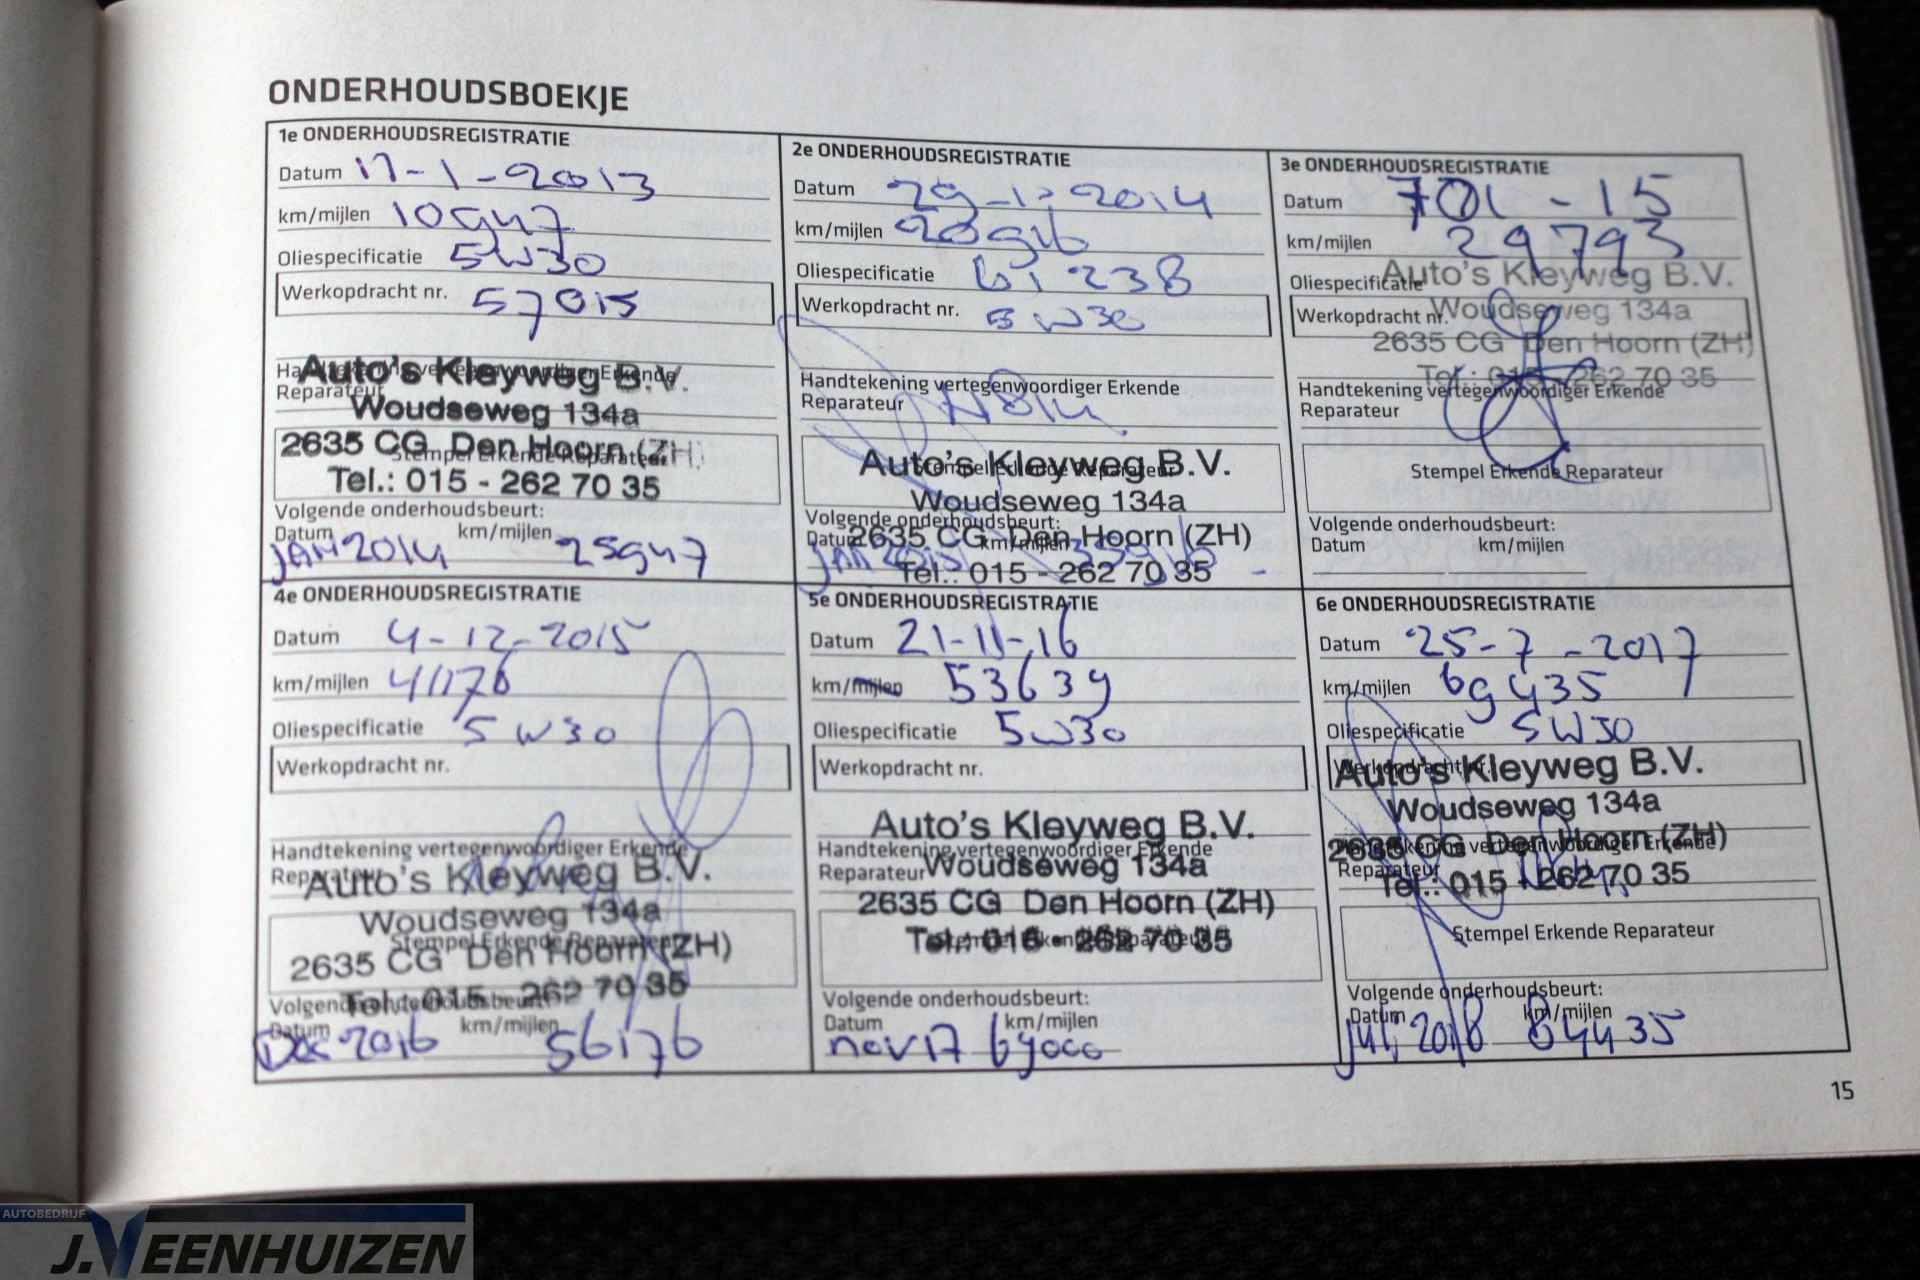 ONDERHOUDSBOEKJE
1e ONDERHOUDSREGISTRATIE
Datum 17-1-2013
km/mijlen 10947
Oliespecificatie 5W30
Werkopdracht nr. 57015
Handtekening vertegenwoordiger Erkende
Reparateur
Auto's Kleyweg B.V.
Woudseweg 134a
2635 CG Den Hoorn (ZH)
Stempel Erkende Reparateur
Tel.: 015 - 262 70 35
Volgende onderhoudsbeurt:
Datum km/mijlen
JAN 2014 25947
2e ONDERHOUDSREGISTRATIE
Datum 29-1-2014
km/mijlen 20916
Oliespecificatie 61238
Werkopdracht nr. 5W30
Handtekening vertegenwoordiger Erkende
Reparateur
Auto's Kleyweg B.V.
Stempel Erkende Reparateur
Woudseweg 134a
Volgende onderhoudsbeurt:
2635 CG Den Hoorn (ZH)
Datum km/mijlen
JAN 2015 35916
Tel.: 015 - 262 70 35
3e ONDERHOUDSREGISTRATIE
Datum -15
km/mijlen 29793
Oliespecificatie
Auto's Kleyweg B.V.
Werkopdracht nr.
Woudseweg 134a
2635 CG Den Hoorn (ZH)
Tel.: 015 - 262 70 35
Handtekening vertegenwoordiger Erkende
Reparateur
Stempel Erkende Reparateur
Volgende onderhoudsbeurt:
Datum km/mijlen
4e ONDERHOUDSREGISTRATIE
Datum 4-12-2015
km/mijlen 41176
Oliespecificatie 5W30
Werkopdracht nr.
Handtekening vertegenwoordiger Erkende
Reparateur
Auto's Kleyweg B.V.
Woudseweg 134a
Stempel Erkende Reparateur
2635 CG Den Hoorn (ZH)
Tel.: 015 - 262 70 35
Volgende onderhoudsbeurt:
Datum km/mijlen
Dec 2016 56176
5e ONDERHOUDSREGISTRATIE
Datum 21-11-16
km/mijlen 53639
Oliespecificatie 5W30
Werkopdracht nr.
Auto's Kleyweg B.V.
Handtekening vertegenwoordiger Erkende
Reparateur
Woudseweg 134a
2635 CG Den Hoorn (ZH)
Stempel Erkende Reparateur
Tel.: 015 - 262 70 35
Volgende onderhoudsbeurt:
Datum km/mijlen
nov 17 69000
6e ONDERHOUDSREGISTRATIE
Datum 25-7-2017
km/mijlen 69435
Oliespecificatie 5W30
Werkopdracht nr.
Auto's Kleyweg B.V.
Woudseweg 134a
2635 CG Den Hoorn (ZH)
Handtekening vertegenwoordiger Erkende
Reparateur
Tel.: 015 - 262 70 35
Stempel Erkende Reparateur
Volgende onderhoudsbeurt:
Datum km/mijlen
juli 2018 84435
15
AUTOBEDRIJF
J.VEENHUIZEN